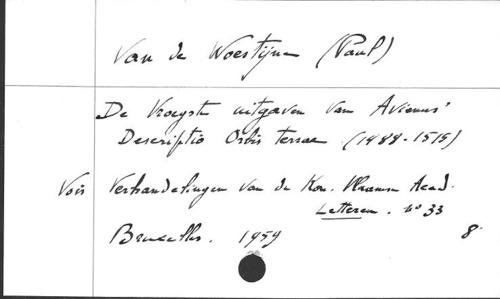 Van de Woestijne (Paul)
De Vroegste uitgaven van Avienus'
Descriptio Orbis terrae (1488-1515)
Voir Verhandelingen van de Kon. Vlaamse Acad.
Letteren. nº 33
Bruxelles. 1959 8º